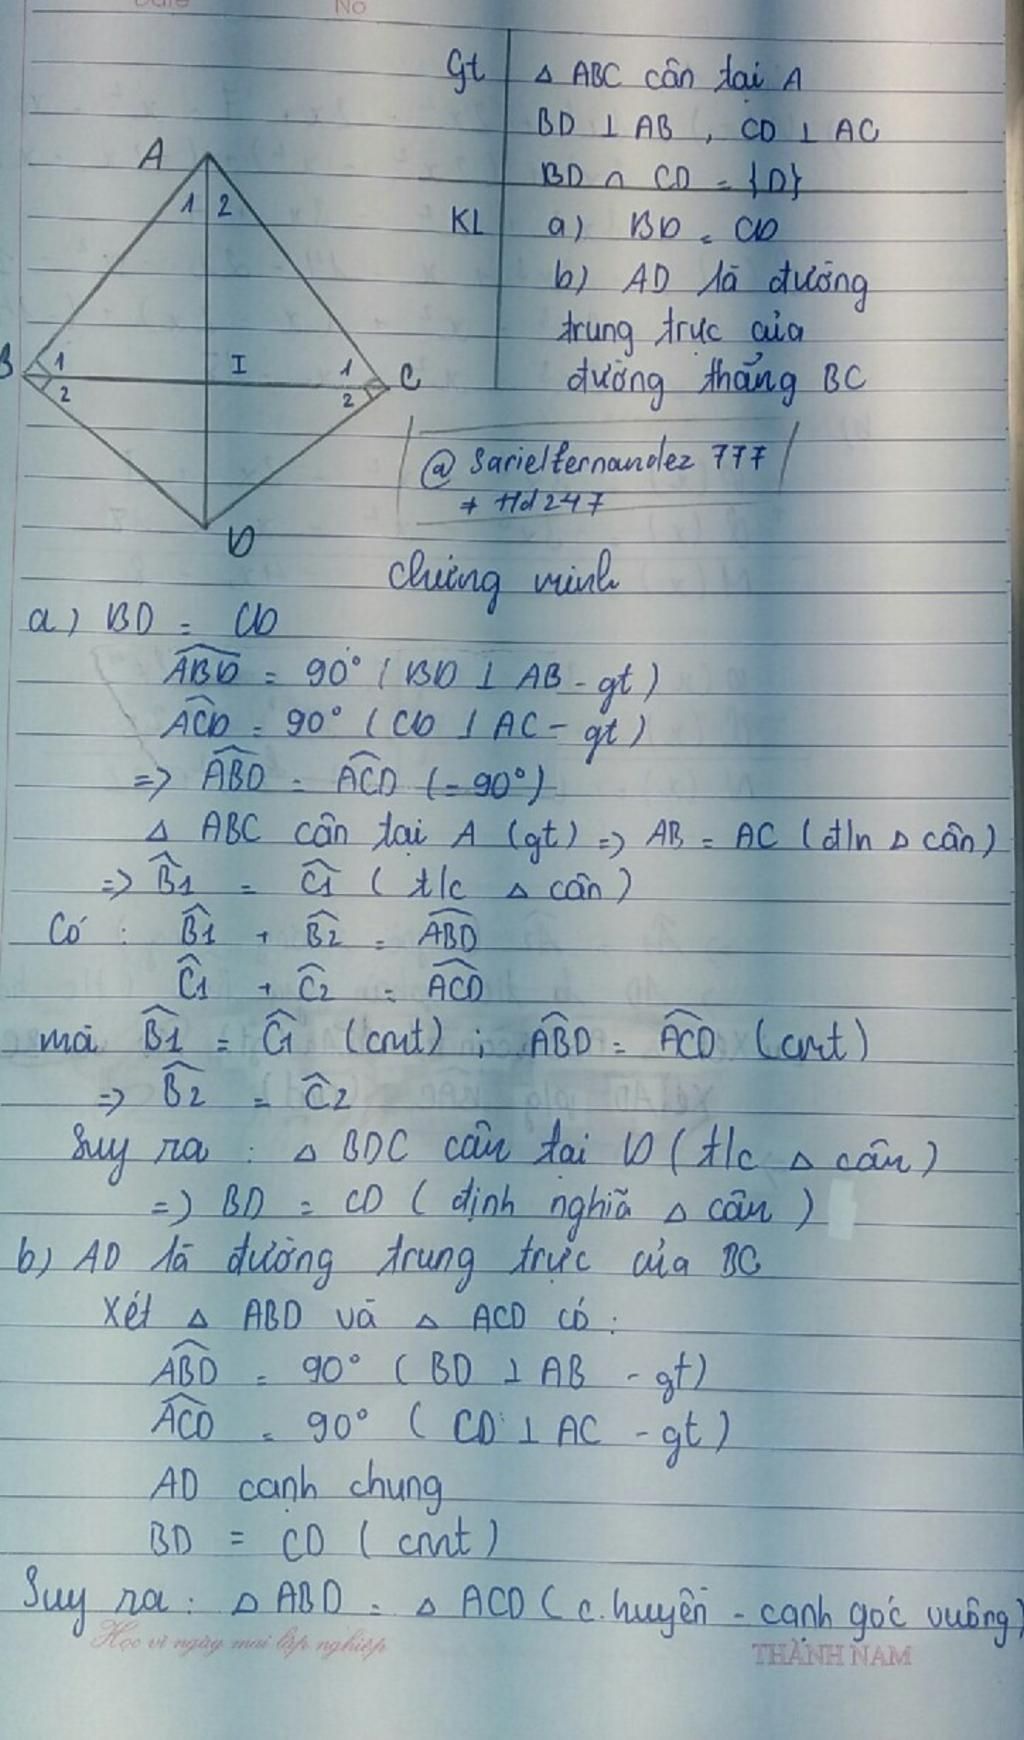 Date No
Gt △ ABC cân tại A
BD ⊥ AB , CD ⊥ AC
BD ∩ CD = {D}
KL a) BD = CD
b) AD là đường
trung trực của
đường thẳng BC
A
1 2
B 1 I 1 C
2 2
D
@ Sarielfernandez 777
+ Hd247
Chứng minh
a) BD = CD
ABD = 90° ( BD ⊥ AB - gt )
ACD = 90° ( CD ⊥ AC - gt )
=> ABD = ACD (= 90°)
△ ABC cân tại A (gt) => AB = AC ( đ/n △ cân )
=> B1 = C1 ( t/c △ cân )
Có : B1 + B2 = ABD
C1 + C2 = ACD
mà B1 = C1 (cmt) ; ABD = ACD (cmt)
=> B2 = C2
Suy ra : △ BDC cân tại D ( t/c △ cân )
=> BD = CD ( định nghĩã △ cân )
b) AD là đường trung trực của BC
Xét △ ABD và △ ACD có :
ABD = 90° ( BD ⊥ AB - gt)
ACD = 90° ( CD ⊥ AC - gt )
AD cạnh chung
BD = CD ( cmt )
Suy ra : △ ABD = △ ACD ( c.huyền - cạnh góc vuông )
Học vì ngày mai lập nghiệp THÀNH NAM